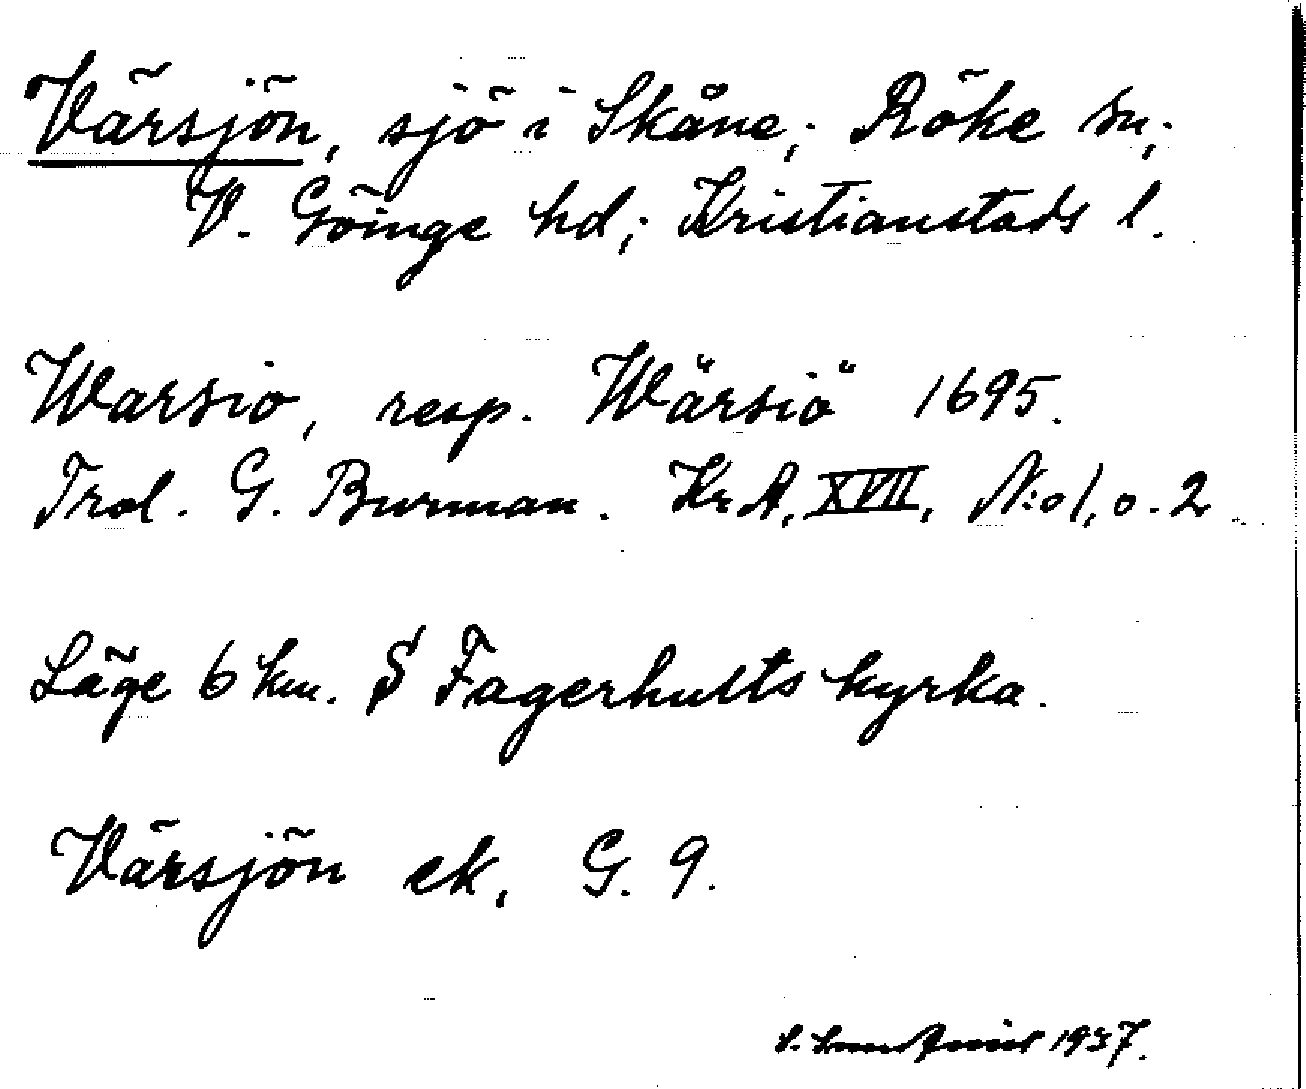 Värsjön, sjö i Skåne; Röke sn;
V. Göinge hd; Kristianstads l.
Warsio, resp. Wärsiö 1695.
Trol. G. Burman. Kr.A, XVII, N:o 1, o. 2
Läge 6 km. S Fagerhults kyrka.
Värsjön ek, G. 9.
1937.